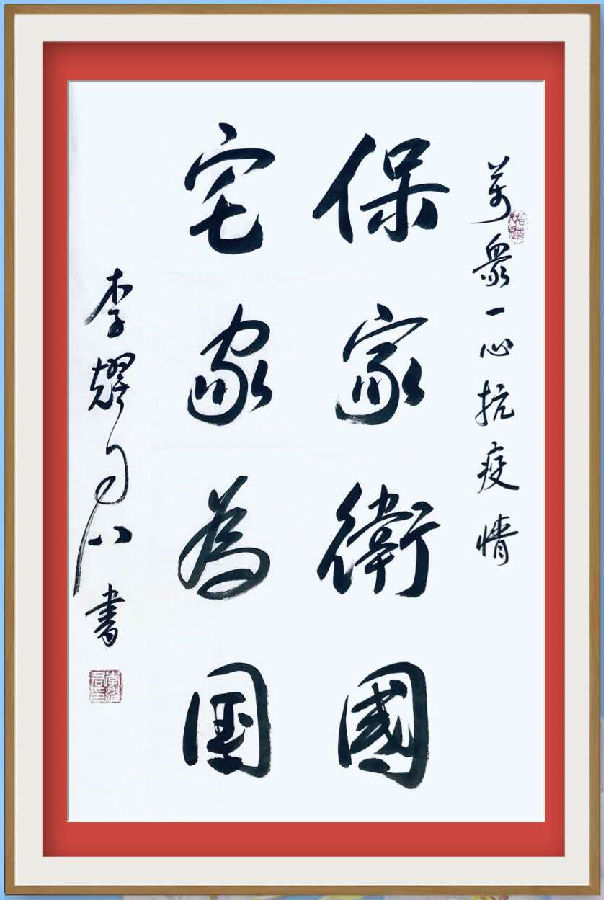 萬衆一心抗疫情
保家衛國
宅家為国
李耀 書